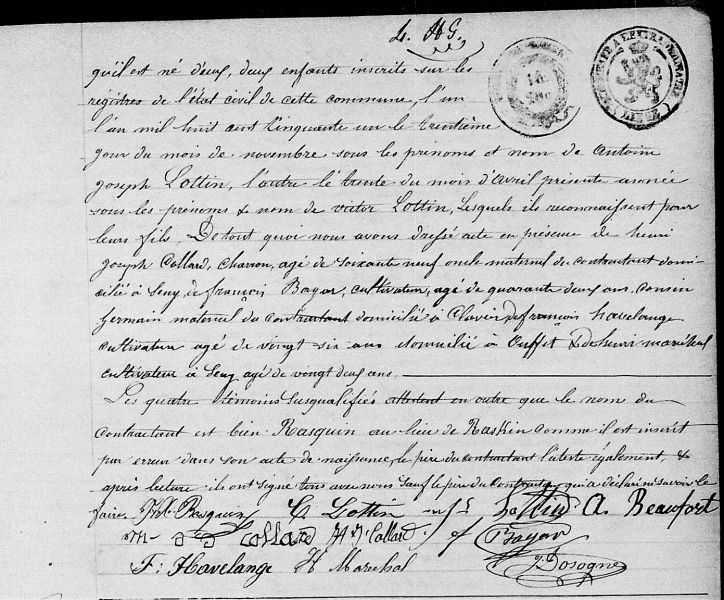 4. HG.
qu'il est né d'eux, deux enfants inscrits sur les
régistres de l'état civil de cette commune, l'un
l'an mil huit cent cinquante un le trentième
jour du mois de novembre sous les prénoms et nom de Antoine
Joseph Lottin, l'autre le trente du mois d'avril présente année
sous les prénoms & nom de victor Lottin, lesquels ils reconnaissent pour
leurs fils. De tout quoi nous avons dressé acte en présence de henri
Joseph Collard, charron, agé de soixante neuf oncle maternel du contractant domi-
cilié à Seny, de françois Bayar, cultivateur, agé de quarante deux ans, cousin
germain maternel du contractant domicilié à Clavier de françois havelange
cultivateur agé de vingt six ans domicilié à Ouffet & de henri maréchal
cultivateur à Seny agé de vingt deux ans.
Les quatre témoins susqualifiés attestent en outre que le nom du
contractant est bien Rasquin au lieu de Raskin comme il est inscrit
par erreur dans son acte de naissance, le père du contractant l'atteste également, &
après lecture ils ont signé tous avec nous sauf le père du contractant qui a déclaré ne savoir le
faire. Rasquin C Lottin A. Beaufort
Collard H J Collard Bayar
F: Havelange H Marechal Dosogne